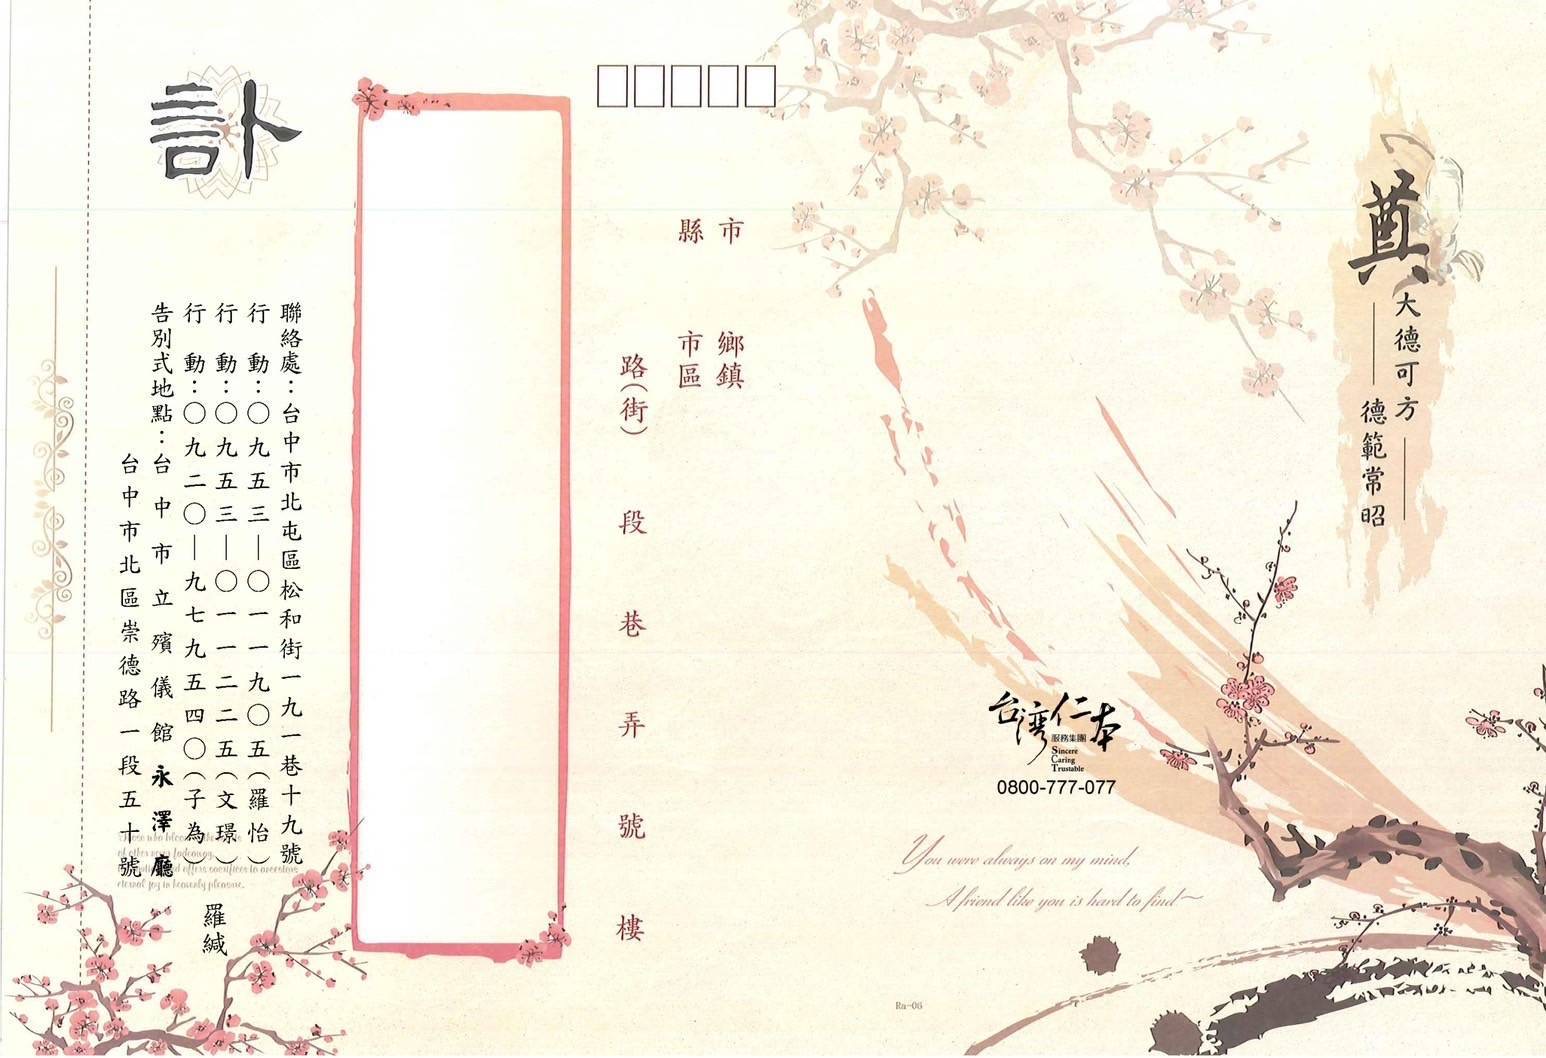 奠
大德可方
德範常昭
台灣仁本
服務集團
Sincere
Caring
Trustable
0800-777-077
You were always on my mind,
A friend like you is hard to find~
Ra-06
市
縣
鄉鎮
市區
路(街)
段
巷
弄
號
樓
訃
聯絡處：台中市北屯區松和街一九一巷十九號
行動：〇九五三—〇一一九〇五(羅怡)
行動：〇九五三—〇一一二二五(文璟)
行動：〇九二〇—九七九五四〇(子為)
告別式地點：台中市立殯儀館永澤廳
台中市北區崇德路一段五十號
羅緘
eternal joy in heavenly pleasure.